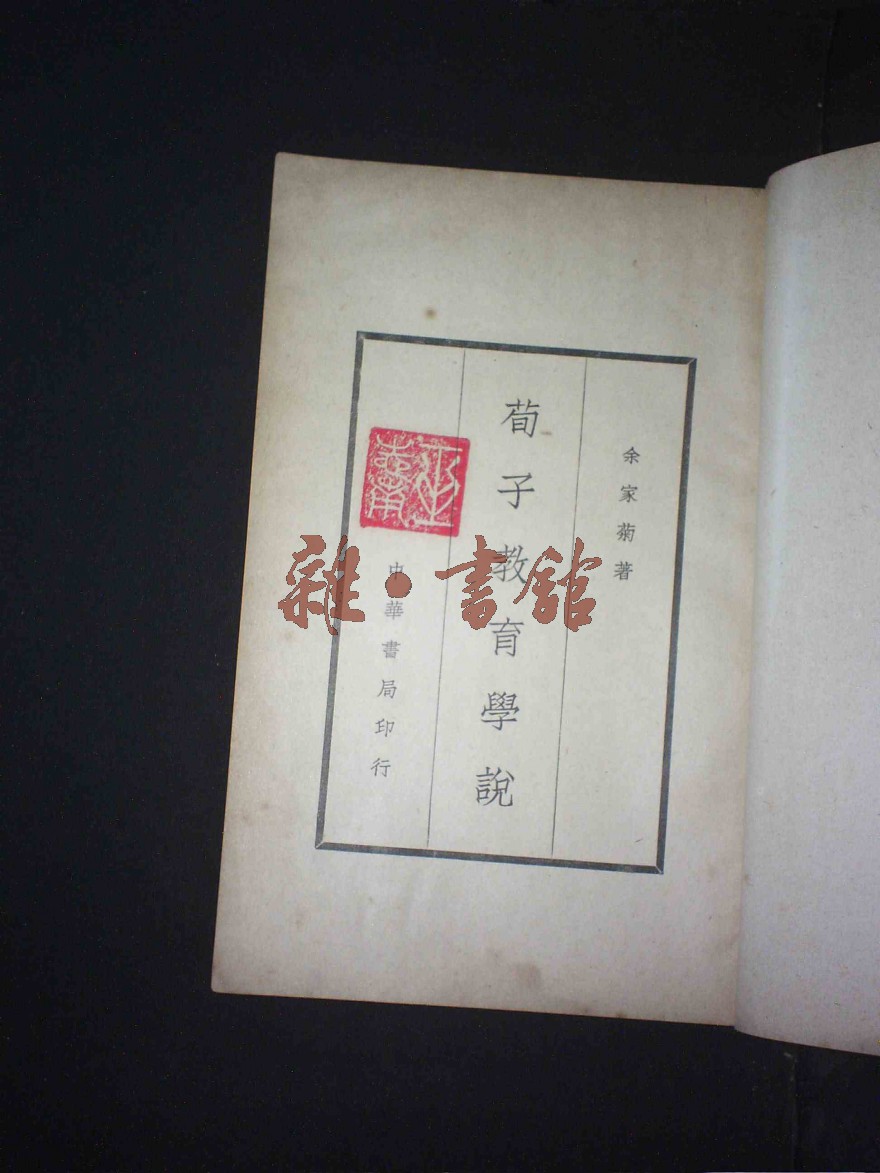 余家菊著
荀子教育學說
中華書局印行
雜·書館